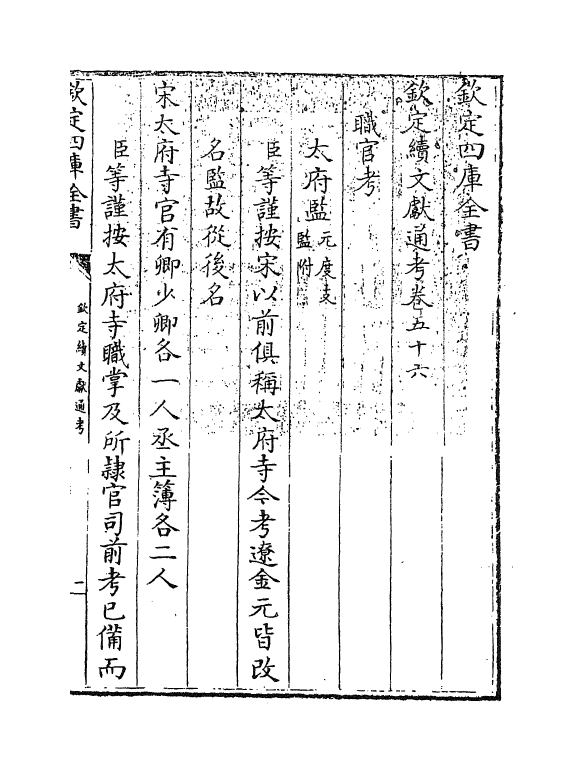 欽定四庫全書
欽定續文獻通考卷五十六
職官考
太府監元度支監附
臣等謹按宋以前俱稱太府寺今考遼金元皆改
名監故從後名
宋太府寺官有卿少卿各一人丞主簿各二人
臣等謹按太府寺職掌及所隸官司前考已備而
欽定四庫全書
欽定續文獻通考